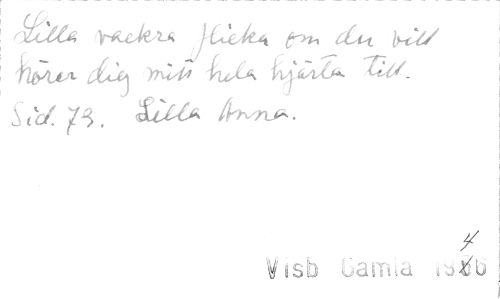 Lilla vackra flicka om du vill
hörer dig mitt hela hjärta till.
Sid. 73. Lilla Anna.
4
Visb Gamla 1966